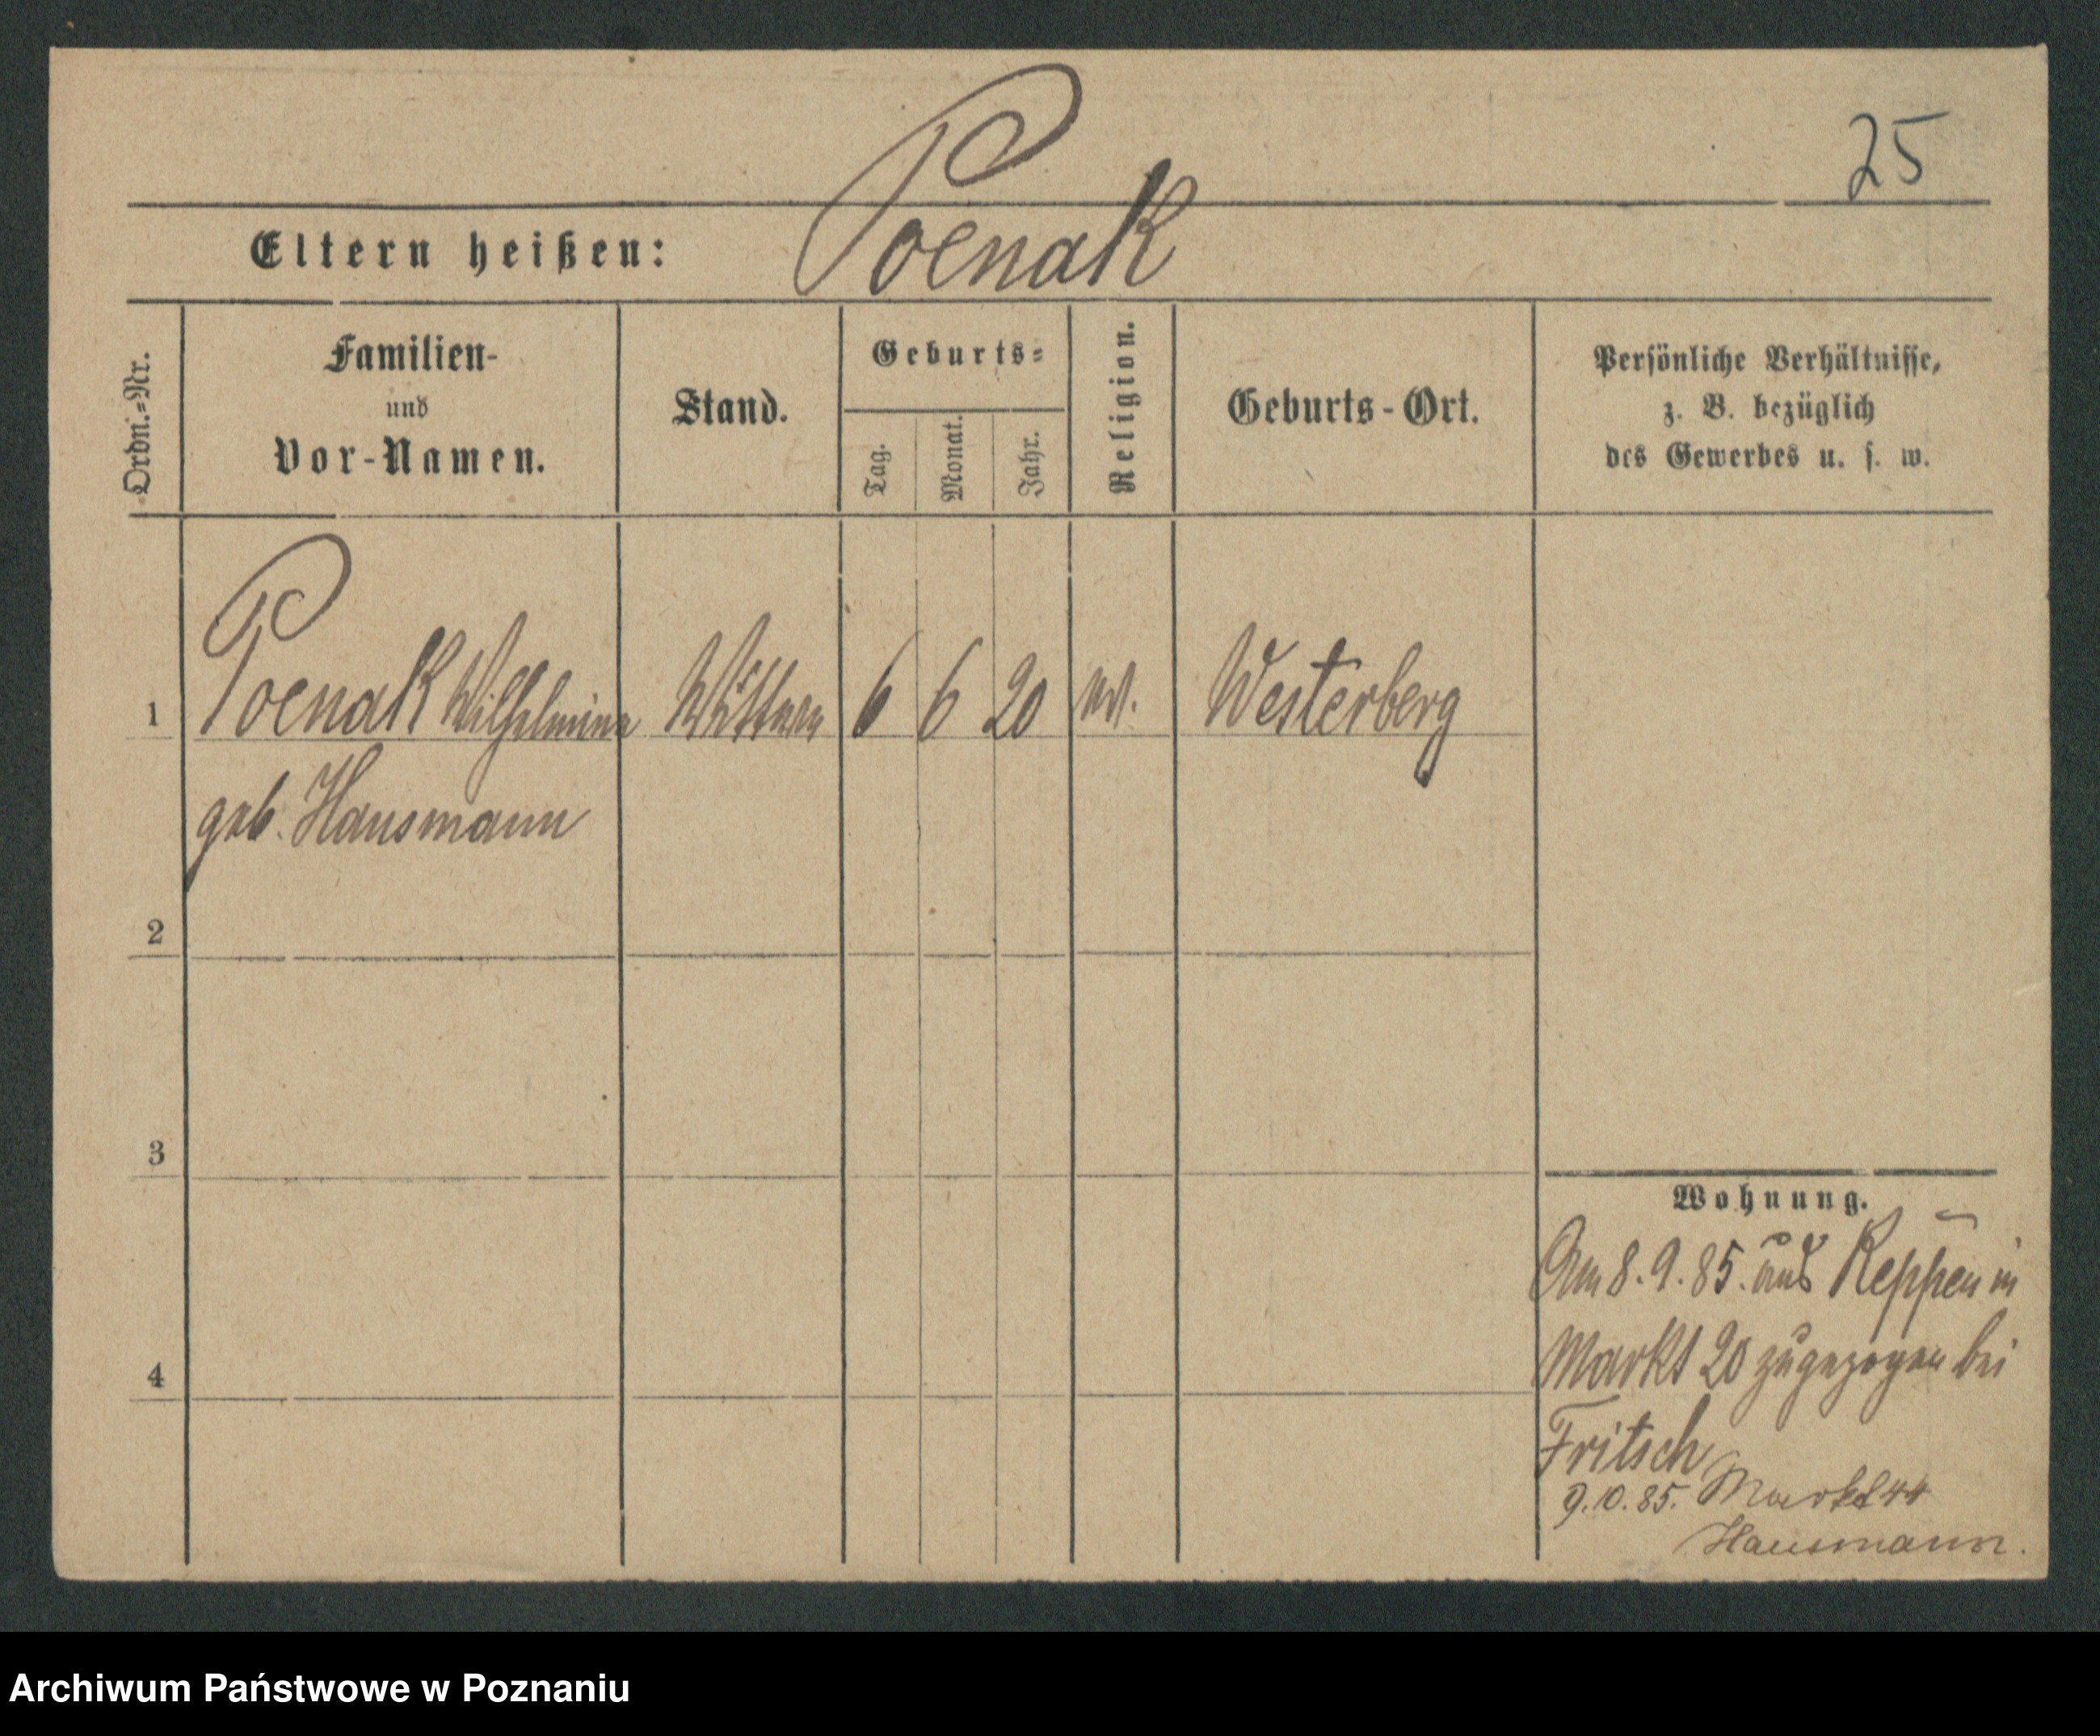 25
Eltern heißen: Poenak
Ordn.=Nr.
Familien-
und
Vor-Namen.
Stand.
Geburts=
Tag.
Monat.
Jahr.
Religion.
Geburts-Ort.
Persönliche Verhältnisse,
z. B. bezüglich
des Gewerbes u. s. w.
1 Poenak Wilhelmine 6 6 20 Westerberg
geb. Hausmann
2
3
4
Wohnung.
Am 8.9.85. aus Reppen in
Markt 20 zugezogen bei
Fritsch
9.10.85. Markt 44
Hausmann.
Archiwum Państwowe w Poznaniu